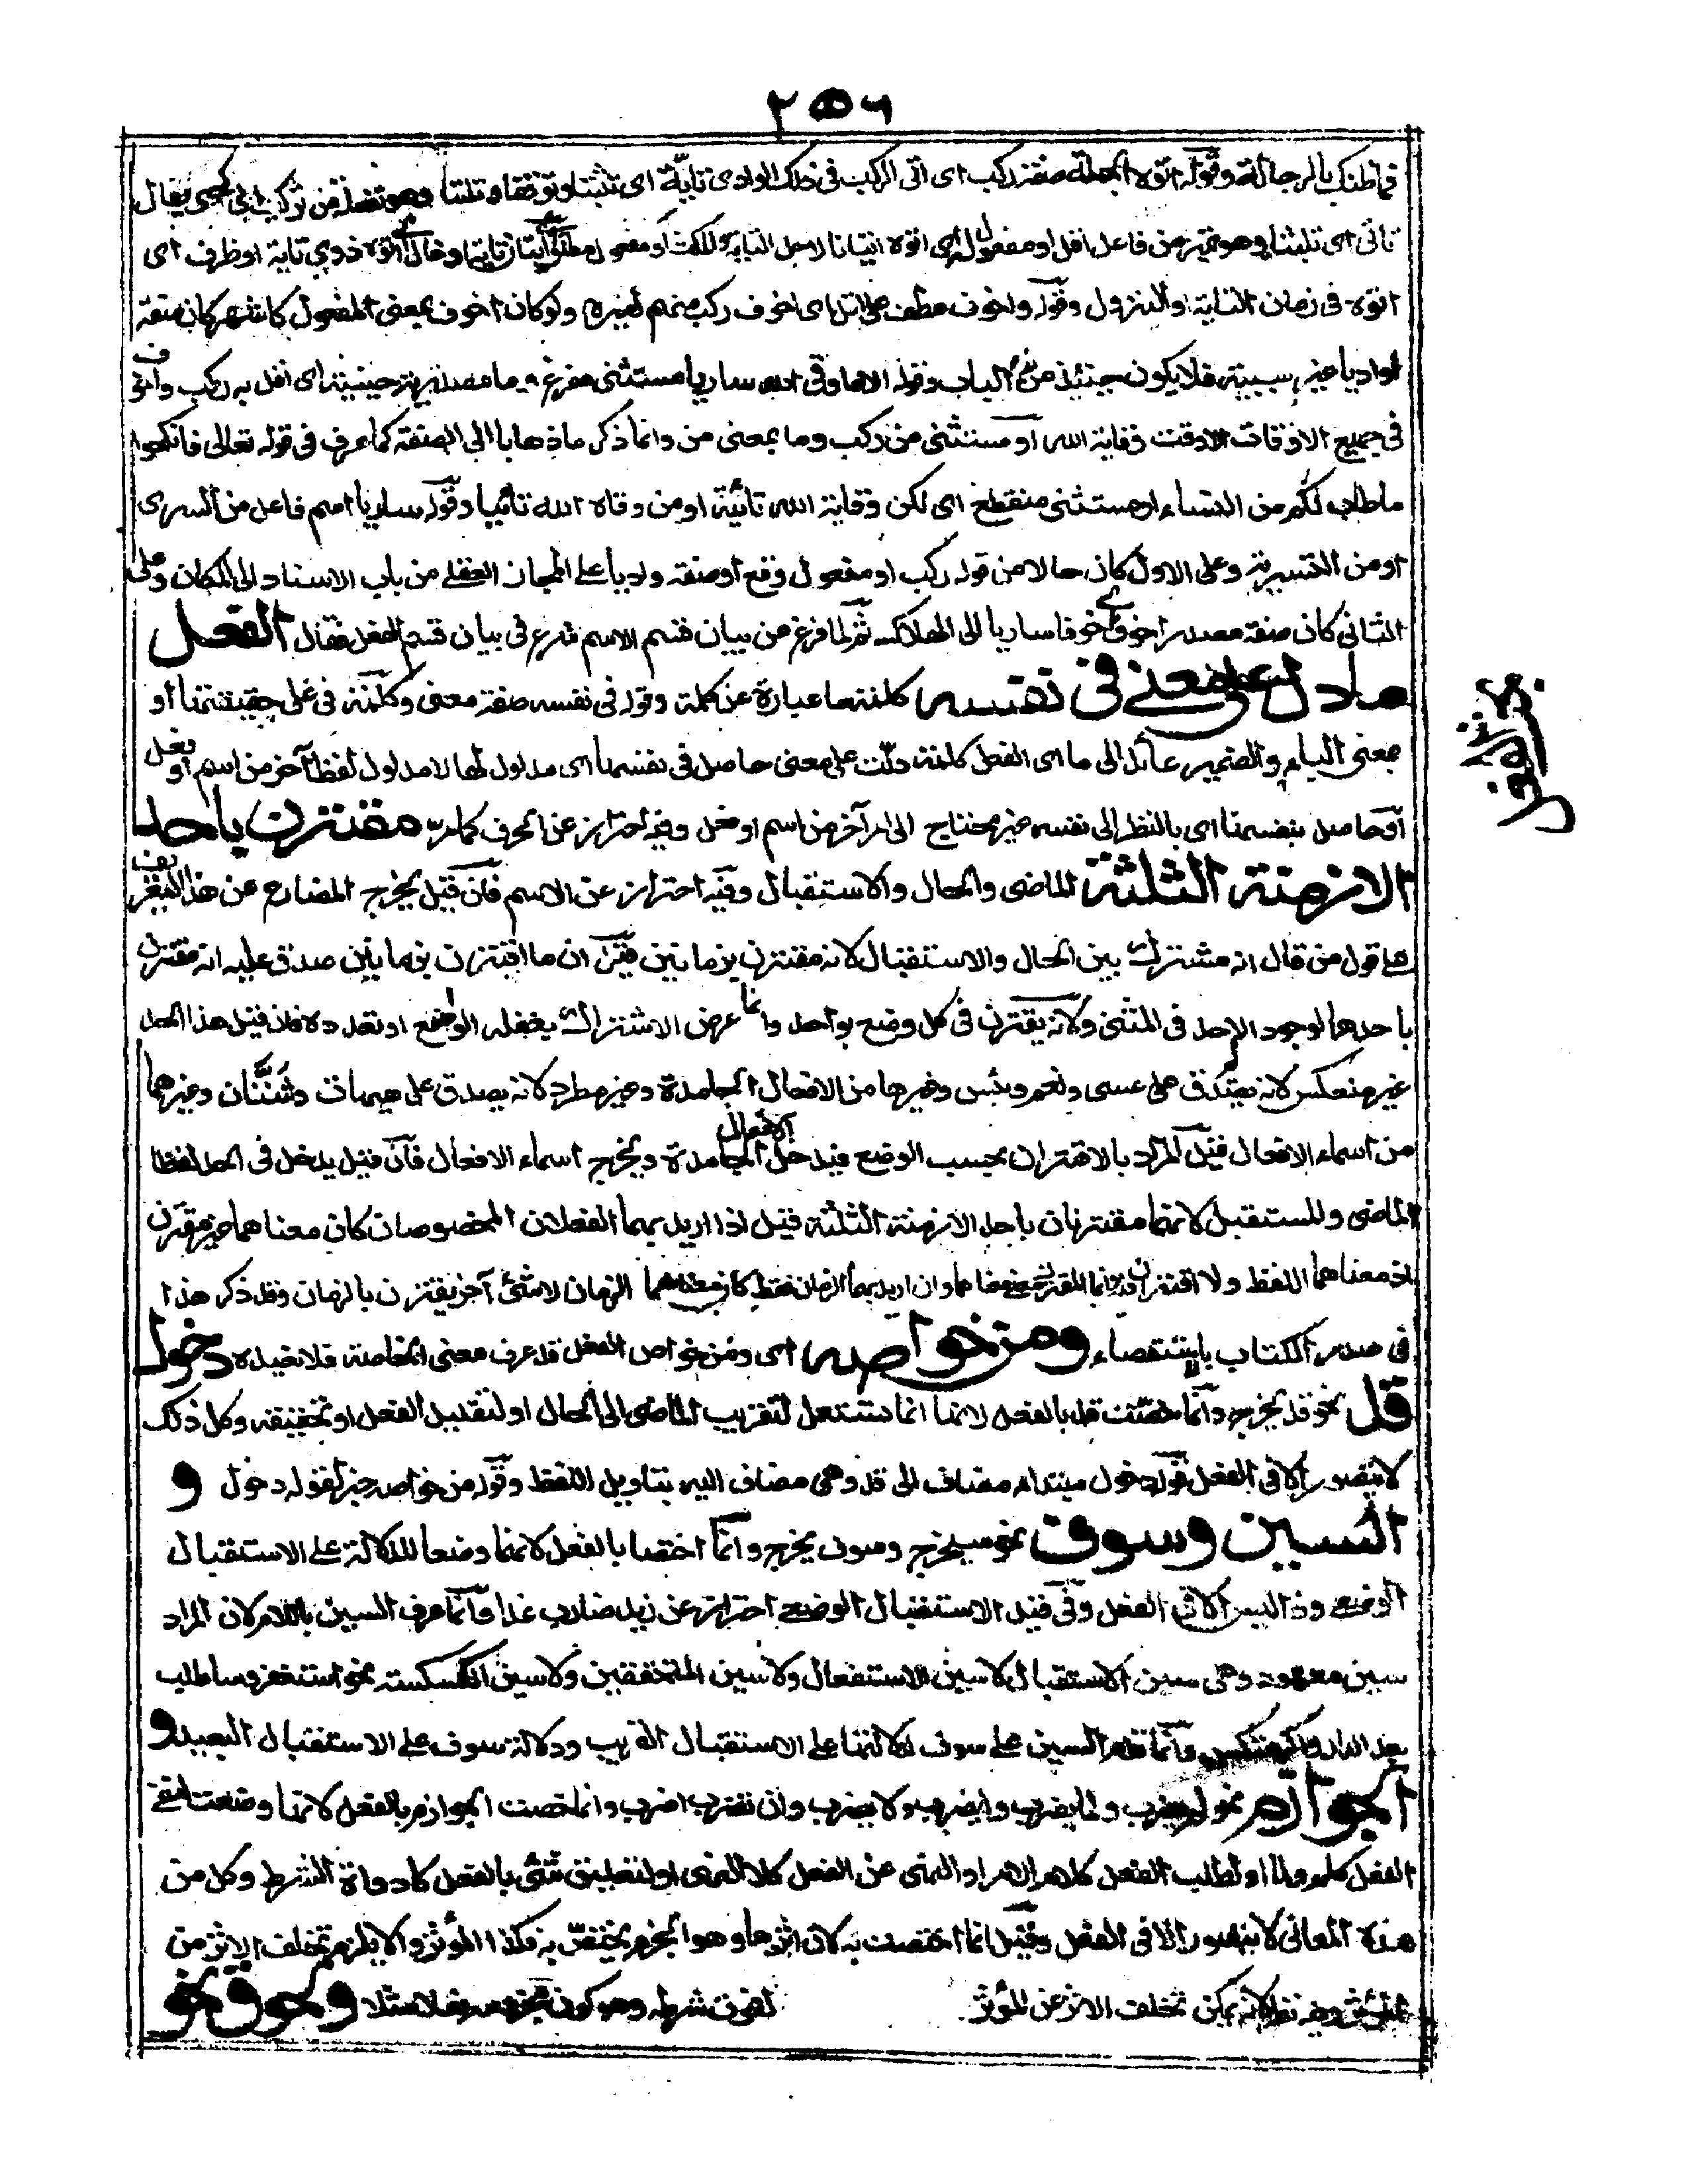 ٢٥٦
فما ظنك بالرجالة وقوله اتوه الجملة صفة ركب اى اتى الركب فى ذلك الوادى تايّة اى تثبتا وتوقفا وتلبثا وهو تفعلة من تركيب
تأنى اى تلبثا وهو تميز من فاعل اقل او مفعول له اى اتوه اتيانا لاجل التاية والمكث او مفعول مطلق او حال اى اتوه ذوى تاية او ظرف اى
اتوه فى زمان التاية او النزول وقوله واخوف عطف على اقل اى اخوف ركب منهم لغيره ولو كان اخوف بمعنى المفعول كاشهر كان صفة
لواديا غير سببية فلا يكون حينئذ من الباب وقوله الا ما وقى الله ساريا مستثنى مفرغ وما مصدرية حينية اى اقل به ركب واخوف
فى جميع الاوقات الا وقت وقاية الله او مستثنى من ركب وما بمعنى من وانما ذكر ما ذهابا الى الصفة كما عرف فى قوله تعالى فانكحوا
ما طاب لكم من النساء او مستثنى منقطع اى لكن وقاية الله تائية او من وقاه الله تائيا وقوله ساريا اسم فاعل من السرى
او من التسرية وعلى الاول كان حالا من قوله ركب او مفعول وقع او صفة واديا على المجاز العقلى من باب الاسناد الى المكان وعلى
الثانى كان صفة مصدر اخوف اى خوفا ساريا الى الهلاك ثم لما فرغ من بيان قسم الاسم شرع فى بيان قسم الفعل فقال الفعل
ما دل على معنى فى نفسه كلمة ما عبارة عن كلمة وقوله فى نفسه صفة معنى وكلمة فى على حقيقتها او
بمعنى الباء والضمير عائد الى ما اى الفعل كلمة دلّت على معنى حاصل فى نفسها اى مدلول لها لا مدلول لفظ آخر من اسم او فعل
او حاصل بنفسها اى بالنظر الى نفسه غير محتاج الى امر آخر من اسم او فعل وفيه احتراز عن الحرف كما مرّ مقترن باحد
الازمنة الثلثة الماضى والحال والاستقبال وفيه احتراز عن الاسم فان قيل يخرج المضارع عن هذا التعريف
على قول من قال انه مشترك بين الحال والاستقبال لانه مقترن بزمانين قيل ان ما اقترن بزمانين صدق عليه انه مقترن
باحدهما لوجود الاحد فى المثنى ولانه يقترن فى كل وضع بواحد وانما عرض الاشتراك بغفلة الواضع او تعدده فان قيل هذا الحد
غير منعكس لانه لم يصدق على عسى ونعم وبئس وغيرها من الافعال الجامدة وغير مطرد لانه يصدق على هيهات وشتّان وغيرهما
من اسماء الافعال قيل المراد بالاقتران بحسب الوضع فيدخل الافعال الجامدة ويخرج اسماء الافعال فان قيل يدخل فى الحد لفظا
الماضى والمستقبل لانهما مقترنان باحد الازمنة الثلثة قيل اذا اريد بهما الفعلان المخصوصان كان معناهما غير مقترن
اذ معناهما اللفظ ولا اقتران فيه وانما المقترن معنى معناهما وان اريد بهما الزمان فقط كان معناهما الزمان لا شئ آخر يقترن بالزمان وقد ذكر هذا
فى صدر الكتاب باستقصاء ومن خواصه اى ومن خواص الفعل قد عرف معنى الخاصة فلا نعيده دخول
قد نحو قد يخرج وانما خصّت قد بالفعل لانها انما تستعمل لتقريب الماضى الى الحال او لتقليل الفعل او تحقيقه وكل ذلك
لا يتصور الا فى الفعل فقوله دخول مبتداء مضاف الى قد وهى مضاف اليه بتاويل اللفظ وقوله من خواصه خبر لقوله دخول و
السين وسوف نحو سيخرج وسوف يخرج وانما اختصا بالفعل لانهما وضعا للدلالة على الاستقبال
الوضعى وذا ليس الا فى الفعل وفى قيد الاستقبال الوضعى احتراز عن زيد ضارب غدا وانما عرف السين باللام لان المراد
سين معهود وهى سين الاستقبال لا سين الاستفعال ولا سين المتحققين ولا سين الكسكسة نحو استغفر وساطلب
بعد الدار وانما قدم السين على سوف لدلالتها على الاستقبال القريب ودلالة سوف على الاستقبال البعيد و
الجوازم نحو لم يضرب ولما يضرب وليضرب ولا يضرب وان تضرب اضرب وانما خصت الجوازم بالفعل لانها وضعت لنفى
الفعل كلم ولما او لطلب الفعل كلام الامر او النهى عن الفعل كلا النهى او لتعليق شئ بالفعل كادواة الشرط وكل من
هذه المعانى لا يتصور الا فى الفعل وقيل انما اختصت به لان اثرها وهو الجزم يختصّ به فكذا المؤثر والا يلزم تخلف الاثر من
المؤثر وفيه نظر لانه يمكن تخلف الاثر عن المؤثر لفوت شرطه وهو كون مثلا ولحوق نحو